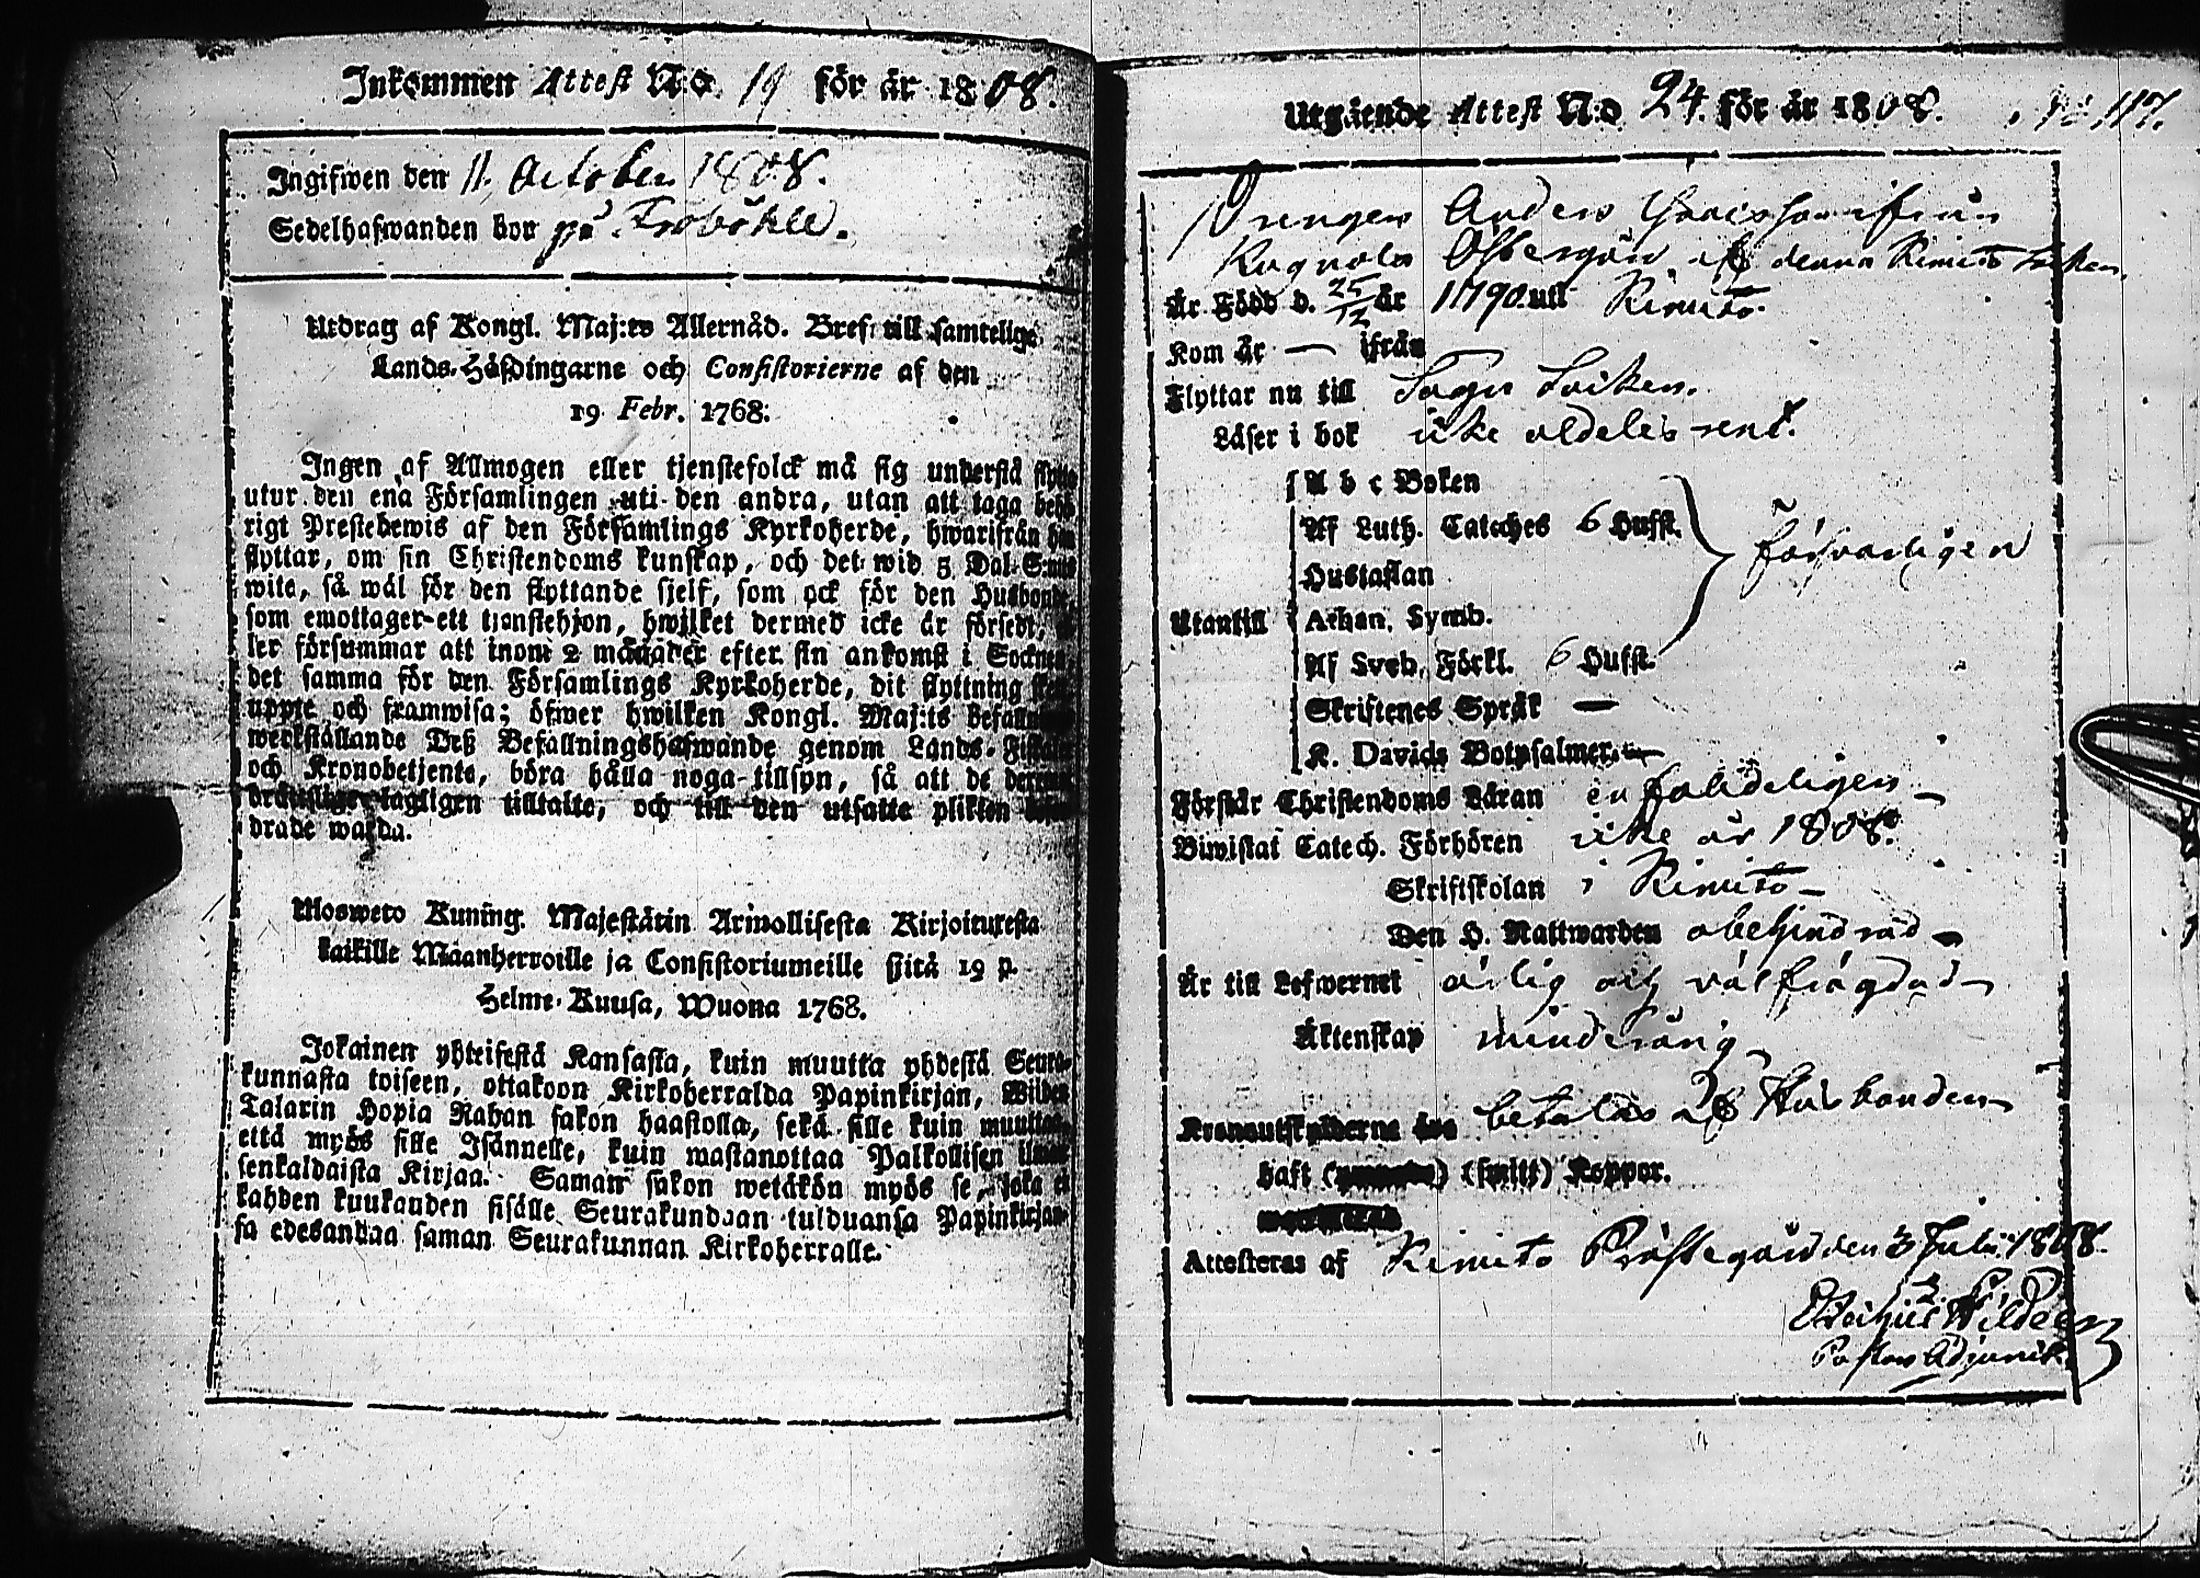 Inkommen Attest N:o 19 för år 1808.
Ingifwen den 11. October 1808.
Sedelhafwanden bor på Froböhle.
Utdrag af Kongl. Maj:ts Allernåd. Bref till samtelige
Lands-Höfdingarne och Consistorierne af den
19 Febr. 1768.
Ingen af Allmogen eller tjenstefolck må sig understå flytta
utur den ena Församlingen uti den andra, utan att taga behö
rigt Prestebewis af den Församlings Kyrkoherde, hwarifrån han
flyttar, om sin Christendoms kunskap, och det wid 5 Dal. S:mts
wite, så wäl för den flyttande sjelf, som ock för den Husbonde,
som emottager ett tjenstehjon, hwilket dermed icke är försedt,
ler försummar att inom 2 månader efter sin ankomst i Socknen,
det samma för den Församlings Kyrkoherde, dit flyttning sker
uppte och framwisa; öfwer hwilken Kongl. Maj:ts Befallnings
werkställande Deß Befallningshafwande genom Lands-Fiskaler
och Kronobetjente, böra hålla noga tillsyn, så att de deremot
bräntslige lagligen tilltalte, och till den utsatte plikten befor
drade warda.
Uloswето Kuning. Majestätin Armollisesta Kirjoituxesta
kaikille Maanherroille ja Consistoriumeille sjitä 19 p.
Helme-Kuusa, Wuona 1768.
Jokainen yhteisestä Kansasta, kuin muutta yhdestä Seura-
kunnasta toiseen, ottakoon Kirkoherralda Papinkirjan, Wiiden
Talarin Hopia Rahan sakon haastolla, sekä sille kuin muuttaa,
että myös sille Isännelle, kuin mastanottaa Palkollisen ilman
senkaldaista Kirjaa. Saman sakon wetäkön myös se, joka ei
kahden kuukauden sisälle Seurakundaan tulduansa Papinkirjan-
sa edesandaa saman Seurakunnan Kirkoherralle.
Utgående Attest N:o 24. för år 1808. 117.
Drengen Anders ifrån
Rugnola Östergård af denna Kimito Socken,
Är Född d. 25/12 år 1790 uti Kimito.
Kom år — ifrån —
Flyttar nu till Sagu Socken.
Läser i bok icke aldeles rent.
Utantill
A b c Boken
Af Luth. Cateches 6 Hufst.
Hustaflan
Athan. Symb.
Af Sveb. Förkl. 6 Hufst.
Skriftenes Språk —
K. Davids Botpsalmer —
försvarligen
Förstår Christendoms Läran enfaldeligen —
Biwistat Catech. Förhören icke år 1808.
Skriftskolan i Kimito —
Den H. Nattwarden obehindrad —
Är till Lefwernet ärlig och välfrägdad —
Äktenskap minderårig —
Kronoutskylderne äro betalas af Husbonden —
haft (smitt) Koppor.
Attesteras af Kimito Prästegård den 3 Julii 1808.
Pastors Adjunct.